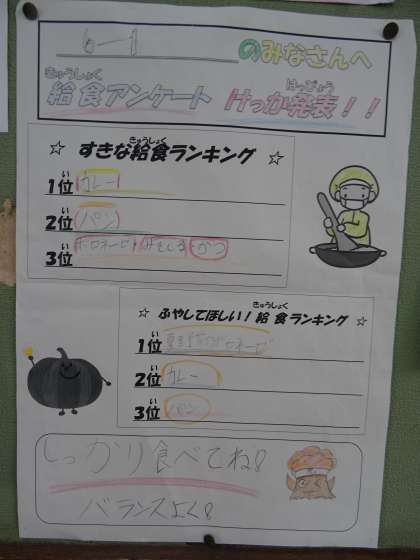 6-1 のみなさんへ
きゅうしょく けっぴょう
給食アンケート けっか発表！！
きゅうしょく
☆ すきな給食ランキング ☆
1位 カレー
2位 パン
3位 かつ
きゅうしょく
☆ ふやしてほしい！給食ランキング ☆
1位
2位 カレー
3位 パン
しっかり食べてね!
バランスよく!